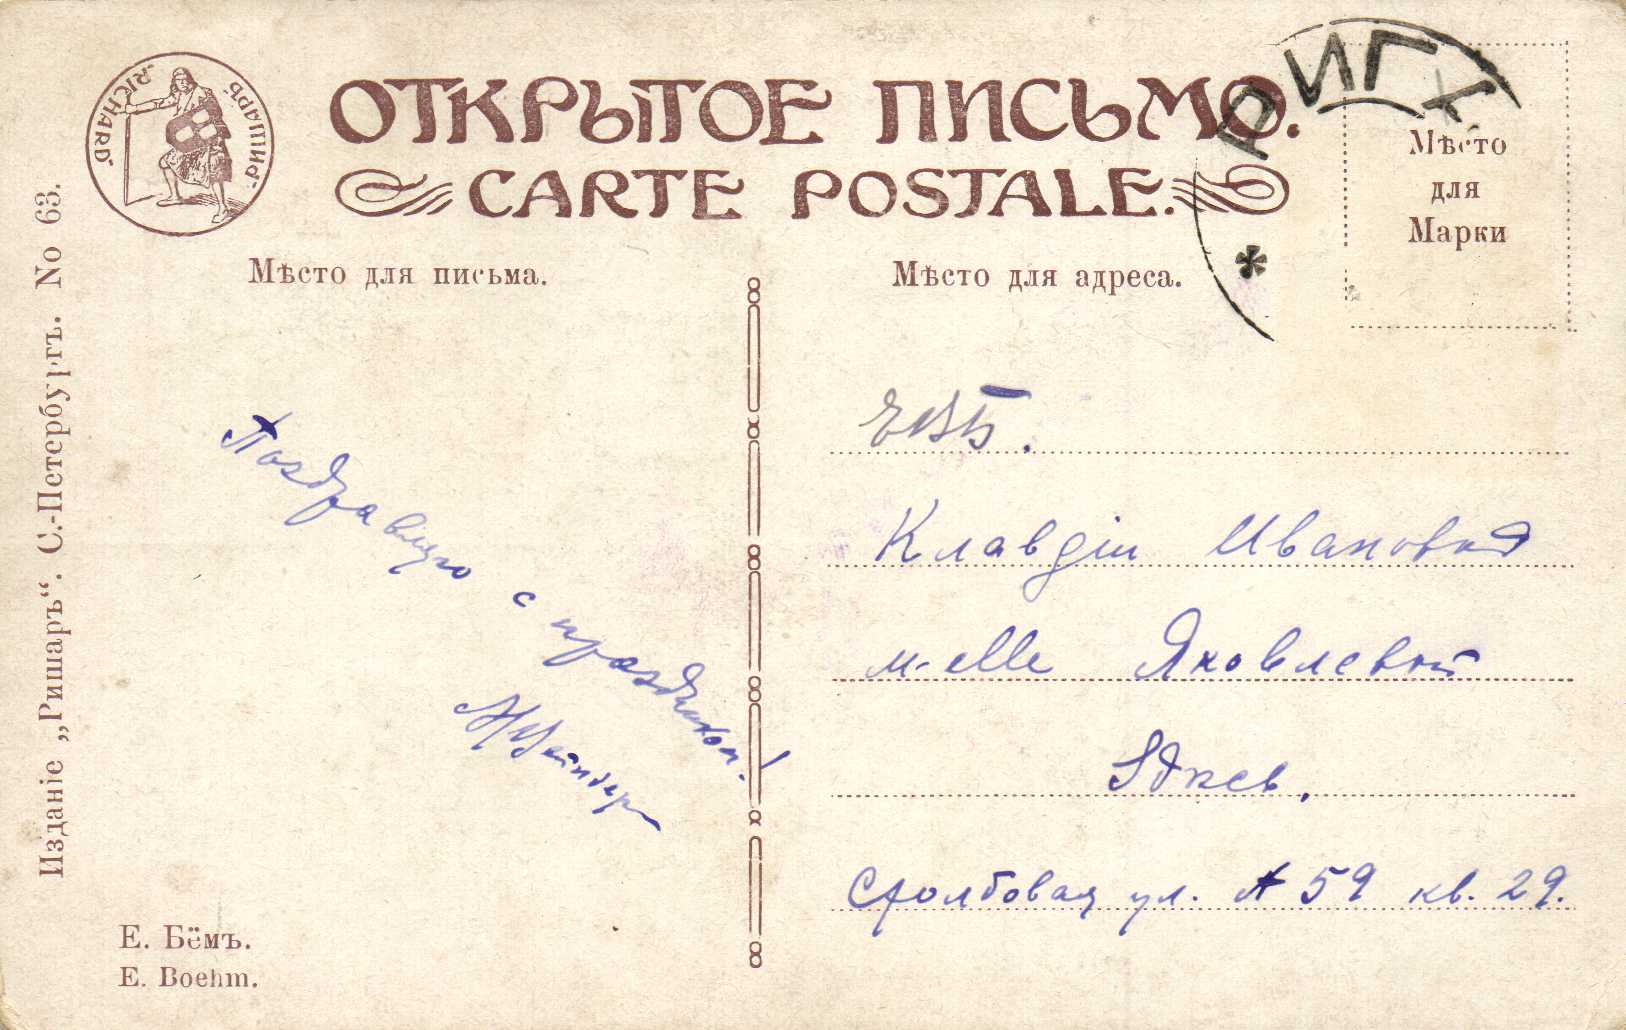 „RICHARD“
„РИШАРЪ“
ОТКРЫТОЕ ПИСЬМО.
CARTE POSTALE.
РИГА
Мѣсто
для
Марки
Мѣсто для письма.
Мѣсто для адреса.
Изданіе „Ришаръ“. С.-Петербургъ. No 63.
Поздравляю с праздником!
ЕВБ.
Клавдіи Ивановнѣ
м-elle Яковлевой
Столбовая ул. № 59 кв. 29.
Е. Бёмъ.
E. Boehm.